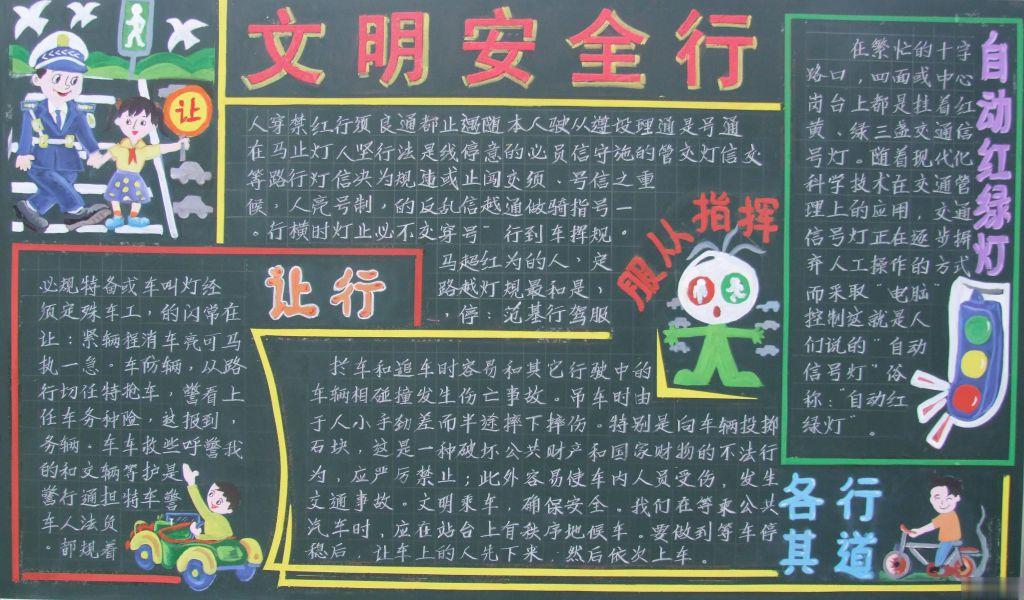 文明安全行
让
人穿禁红行须良通都止 随本人驶从遵设理通是号通
在马止灯人坚行法是线停意的必员信守施的管交灯信交
等路行灯信决为规 或止闯交须、号信之重
候,人亮号制,的反乱信越通做骑指号一
。行横时灯止必不交穿号"行到车挥规。
马超红为的人,定
路越灯规最和是,
,停:范基行驾服
服从指挥
让行
必规特备或车叫灯经
须定殊车工,的闪常在
让:紧辆程消车亮可马
执一急。车防辆,从路
行切任特抢车,警看上
任车务种险,这报到,
务辆。车车救些呼警我
的和文辆等护是
警行通担特车警
车人法负
。都规着
拦车和追车时容易和其它行驶中的
车辆相碰撞发生伤亡事故。吊车时由
于人小手劲差而半途摔下摔伤。特别是向车辆投掷
石块,这是一种破坏公共财产和国家财物的不法行
为,应严厉禁止;此外容易使车内人员受伤,发生
交通事故。文明乘车,确保安全。我们在等乘公共
汽车时,应在站台上有秩序地候车。要做到等车停
稳后,让车上的人先下来,然后依次上车。
各行其道
自动红绿灯
在繁忙的十字
路口,四面或中心
岗台上都是挂着红
黄、绿三盏交通信
号灯。随着现代化
科学技术在交通管
理上的应用,交通
信号灯正在逐步摒
弃人工操作的方式
而采取"电脑"
控制这就是人
们说的"自动
信号灯"俗
称:"自动红
绿灯"。